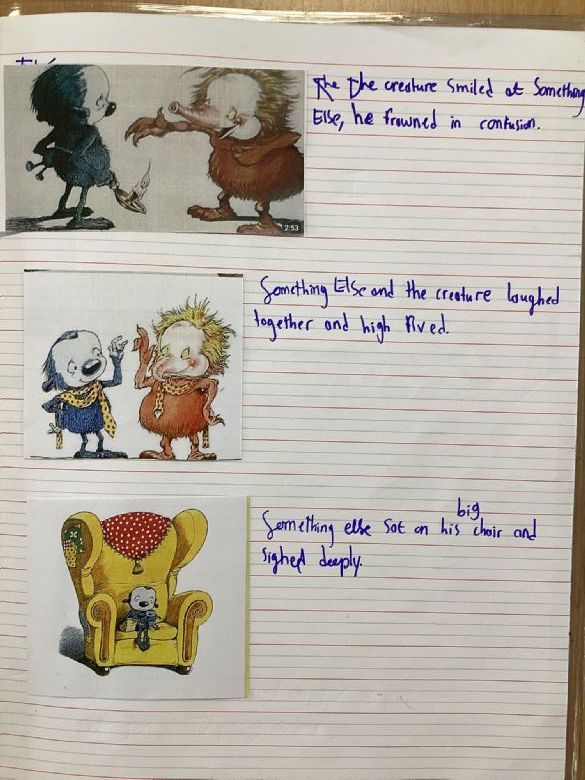 The The creature smiled at Something
Else, he frowned in confusion.
2:53
Something Else and the creature laughed
together and high fived.
big
Something else sat on his chair and
sighed deeply.